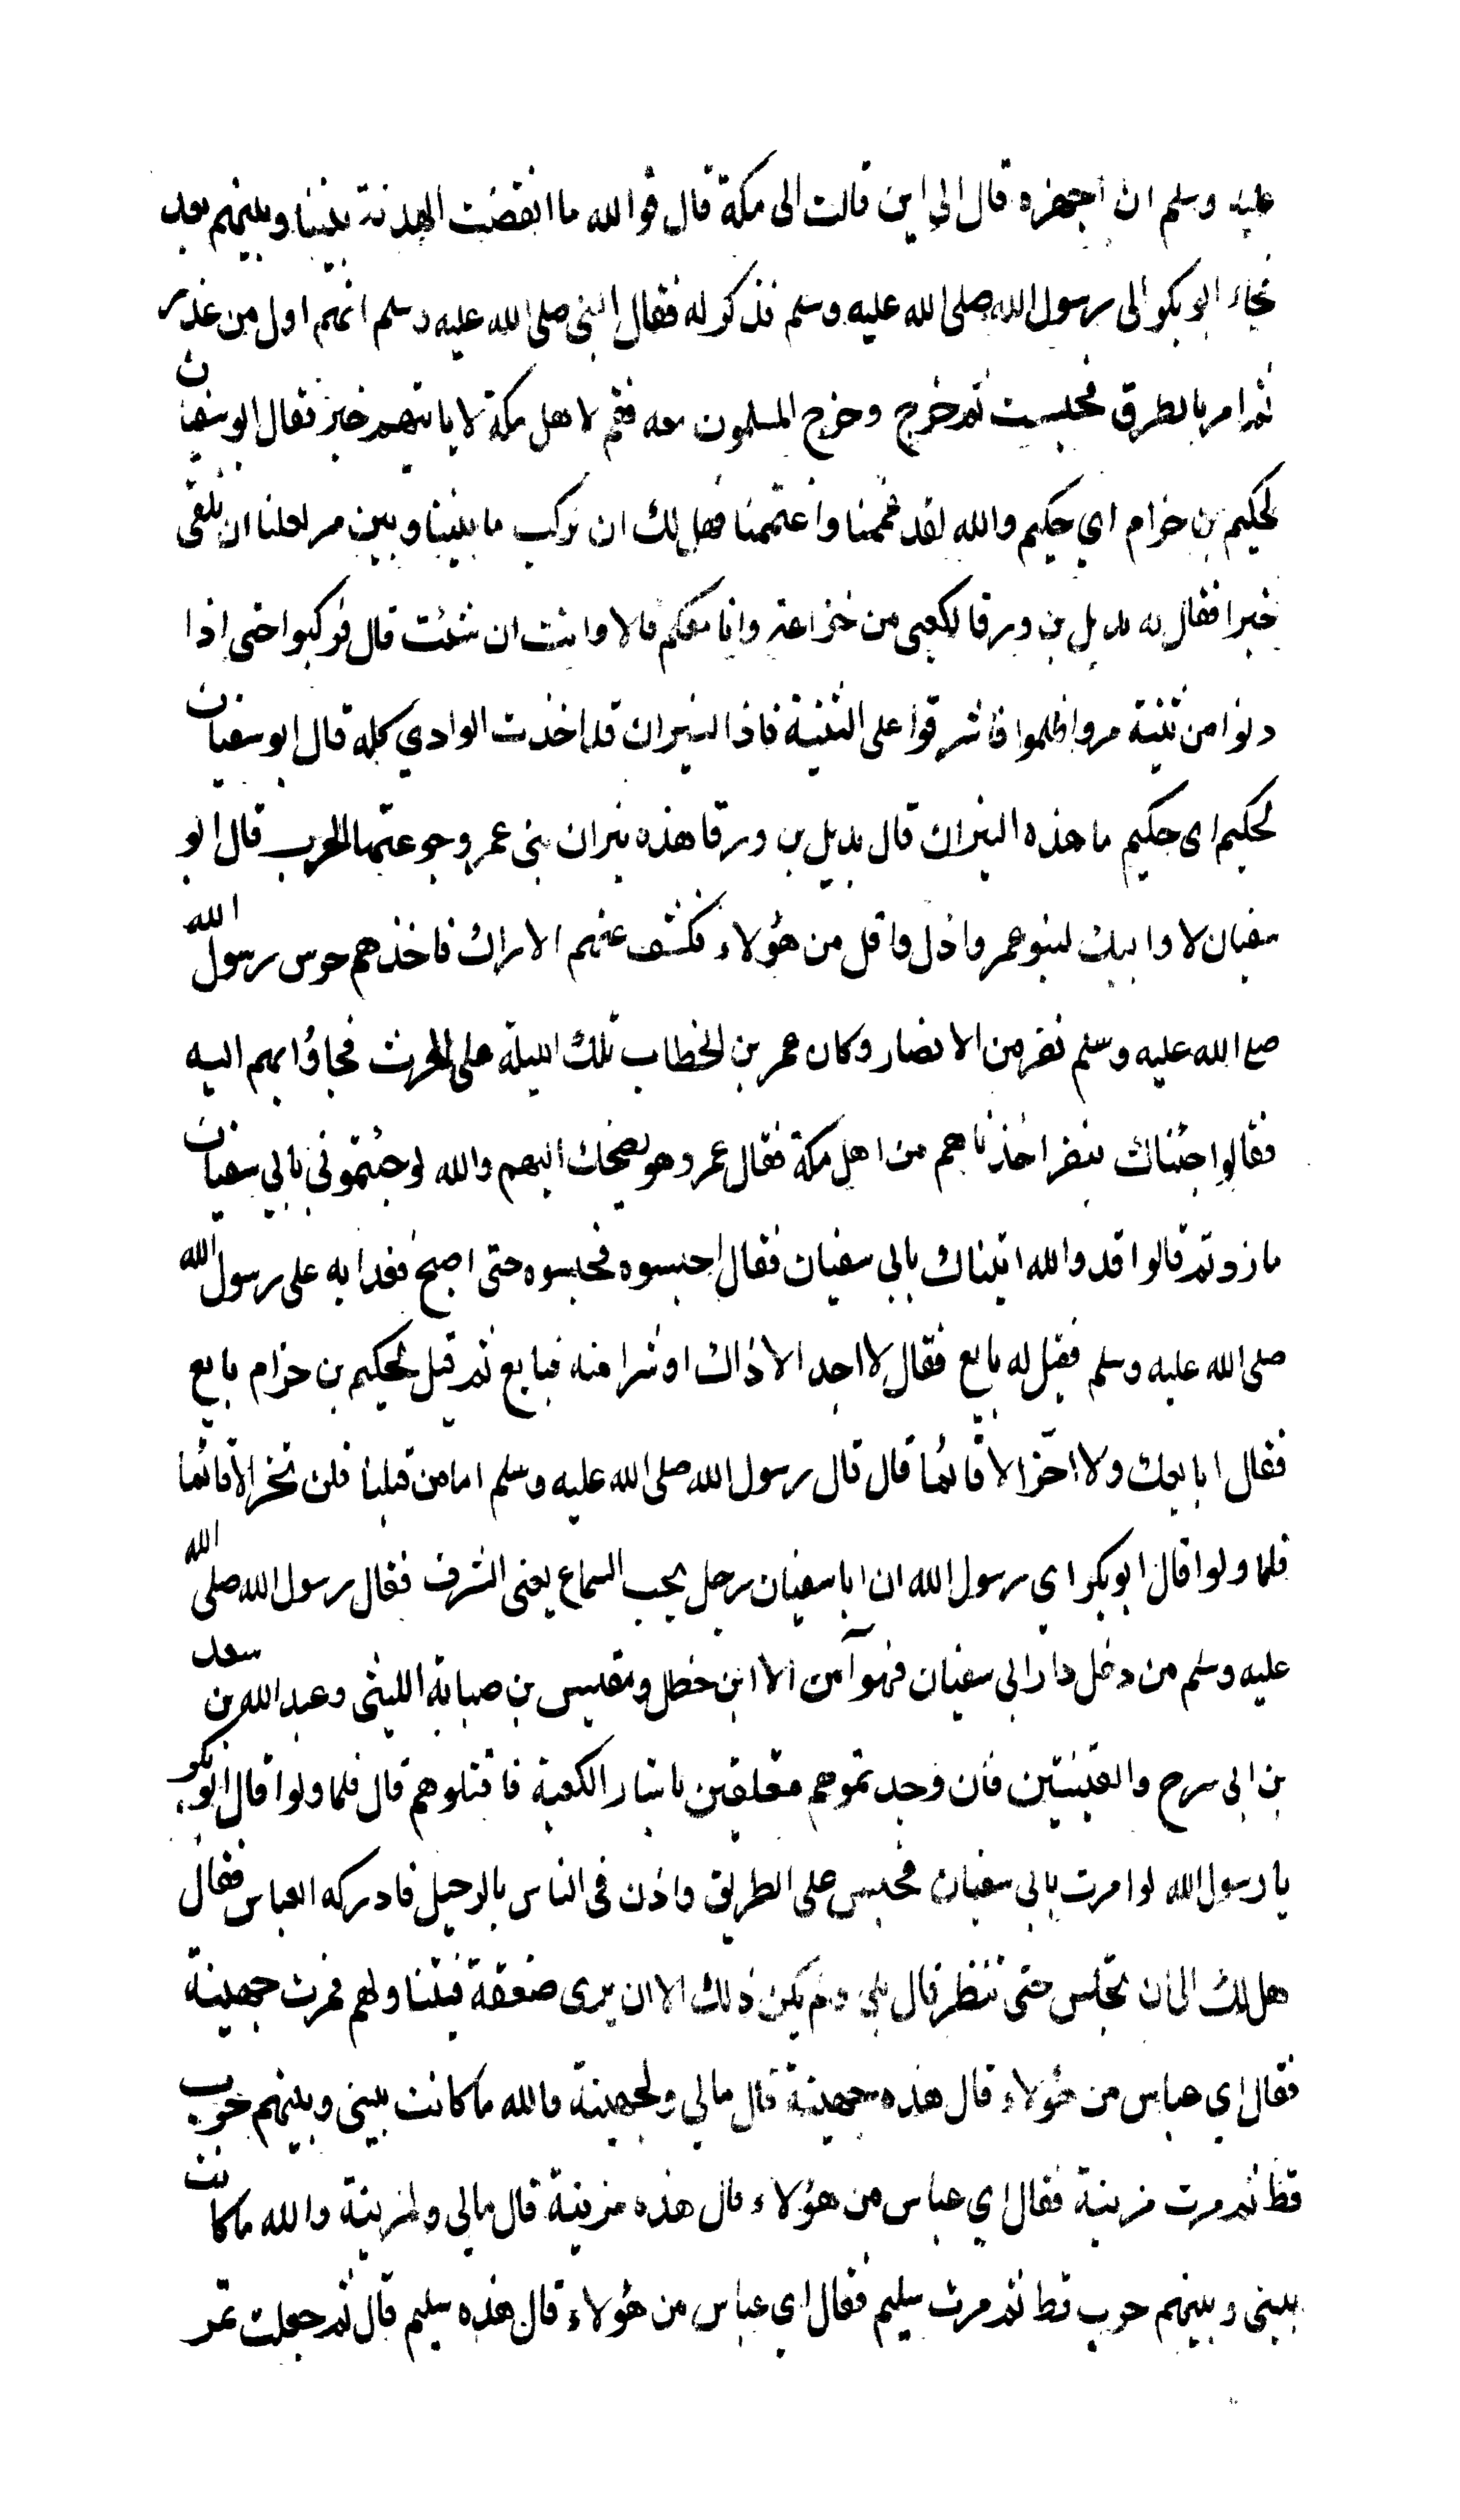 عليه وسلم ان اجهزه قال الى اين قالت الى مكة قال فوالله ما انقضت الهدنة بيننا وبينهم بعد
فجاء ابو بكر الى رسول الله صلى الله عليه وسلم فذكر له فقال النبى صلى الله عليه وسلم انهم اول من غدر
ثم امر بالطرق فحبست ثم خرج وخرج المسلمون معه فغم لاهل مكة لا ياتيهم خبر فقال ابو سفيان
لحكيم بن حزام اي حكيم والله لقد غممنا واغتممنا فهل لك ان نركب ما بيننا وبين مر لعلنا ان نلقى
خبرا فقال له بديل بن ورقا الكعبى من خزاعة وانا معكم قالا وانت ان شئت قال فركبوا حتى اذا
دنوا من ثنية مر واظلموا فاشرفوا على الثنية فاذا النيران قد اخذت الوادي كله قال ابو سفيان
لحكيم اى حكيم ما هذه النيران قال بديل بن ورقا هذه نيران بنى عمرو جوعتها الحرب قال ابو
سفيان لا وابيك لبنو عمرو اذل واقل من هؤلاء فكشف عنهم الاراك فاخذهم حرس رسول الله
صلى الله عليه وسلم نفر من الانصار وكان عمر بن الخطاب تلك الليلة على الحرث فجاؤا بهم اليه
فقالوا جئناك بنفر اخذناهم من اهل مكة فقال عمر وهو يضحك اليهم والله لو جئتموني بابي سفيان
ما زدتم قالوا قد والله اتيناك بابى سفيان فقال احبسوه فحبسوه حتى اصبح فغدا به على رسول الله
صلى الله عليه وسلم فقيل له بايع فقال لا اجد الا ذاك او شرا منه فبايع ثم قيل لحكيم بن حزام بايع
فقال ابايعك ولا اخر الا قائما قال قال رسول الله صلى الله عليه وسلم اما من قبلنا فلن تخر الا قائما
فلما ولوا قال ابو بكر اي رسول الله ان ابا سفيان رجل يحب السماع يعنى الشرف فقال رسول الله صلى الله
عليه وسلم من دخل دار ابى سفيان فهو آمن الا ابن خطل ومقيس بن صبابة الليثى وعبد الله بن سعد
بن ابى سرح والقينتين فان وجدتموهم متعلقين باستار الكعبة فاقتلوهم قال فلما ولوا قال ابو بكر
يا رسول الله لو امرت بابى سفيان فحبس على الطريق واذن فى الناس بالرحيل فادركه العباس فقال
هل لك الى ان تجلس حتى تنظر قال بلى ولم يكن ذلك الا ان يرى ضعفة فيتناولهم فمرت جهينة
فقال اي عباس من هؤلاء قال هذه جهينة قال مالي ولجهينة والله ما كانت بينى وبينهم حرب
قط ثم مرت مزينة فقال اي عباس من هؤلاء قال هذه مزينة قال مالى ولمزينة والله ما كانت
بينى وبينهم حرب قط ثم مرت سليم فقال اي عباس من هؤلاء قال هذه سليم قال ثم جعلت تمر